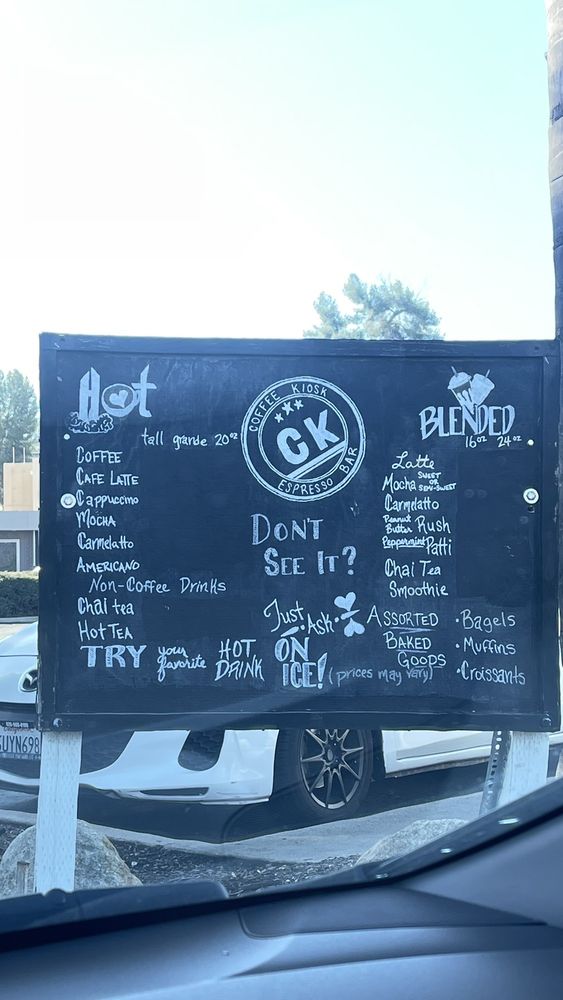 Hot
tall grande 20oz
COFFEE
CAFE LATTE
Cappuccino
MOCHA
Carmelatto
AMERICANO
Non-Coffee Drinks
Chai tea
Hot TEA
TRY your favorite HOT DRINK
ON ICE! (prices may vary)
COFFEE KIOSK
CK
ESPRESSO BAR
DON'T
SEE IT?
Just
Ask
BLENDED
16oz 24oz
Latte
Mocha SWEET OR SEMI-SWEET
Carmelatto
Peanut Butter Rush
Peppermint Patti
Chai Tea
Smoothie
ASSORTED
BAKED
GOODS
• Bagels
• Muffins
• Croissants